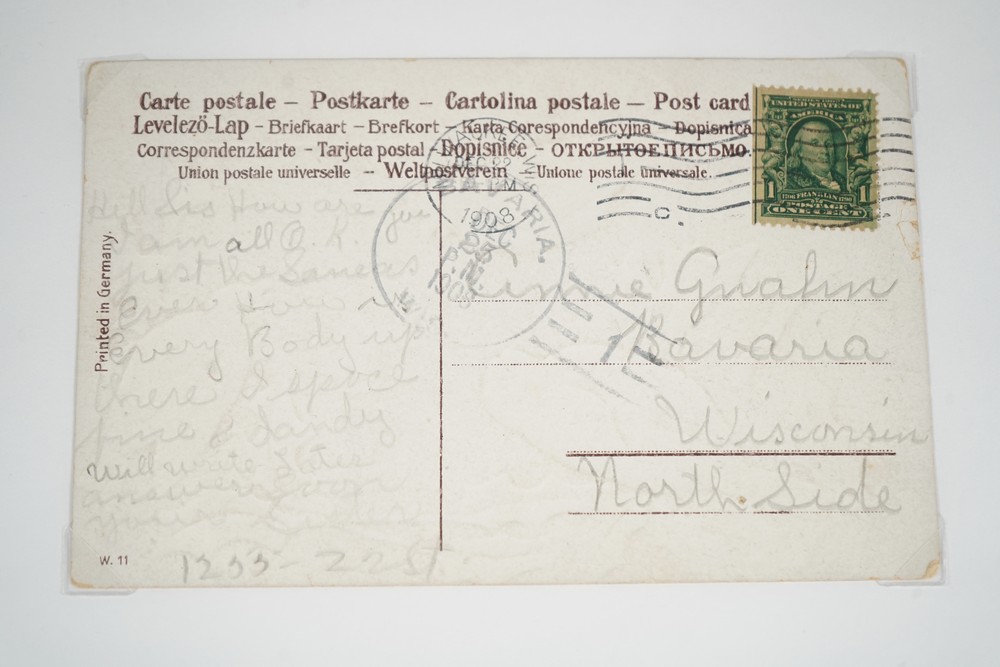 Carte postale – Postkarte – Cartolina postale – Post card
Levelező-Lap – Briefkaart – Brefkort – Karta Corespondencyjna – Dopisnica
Correspondenzkarte – Tarjeta postal – Dopisnice – ОТКРЫТОЕ ПИСЬМО.
Union postale universelle – Weltpostverein – Unione postale universale.
UNITED STATES OF
AMERICA
1 1
1706 FRANKLIN 1790
POSTAGE
ONE CENT
MILWAUKEE, WIS.
DEC 22
M
1908
BAVARIA,
DEC
1908
C.
Printed in Germany.
Hell Sis How are you
I am all O.K.
just the Same as
ever How is
every Body up
there I spose
fine & dandy
will write Later
answer soon
your Sister
1233 – 22 St.
Bavaria
Wisconsin
North Side
W. 11